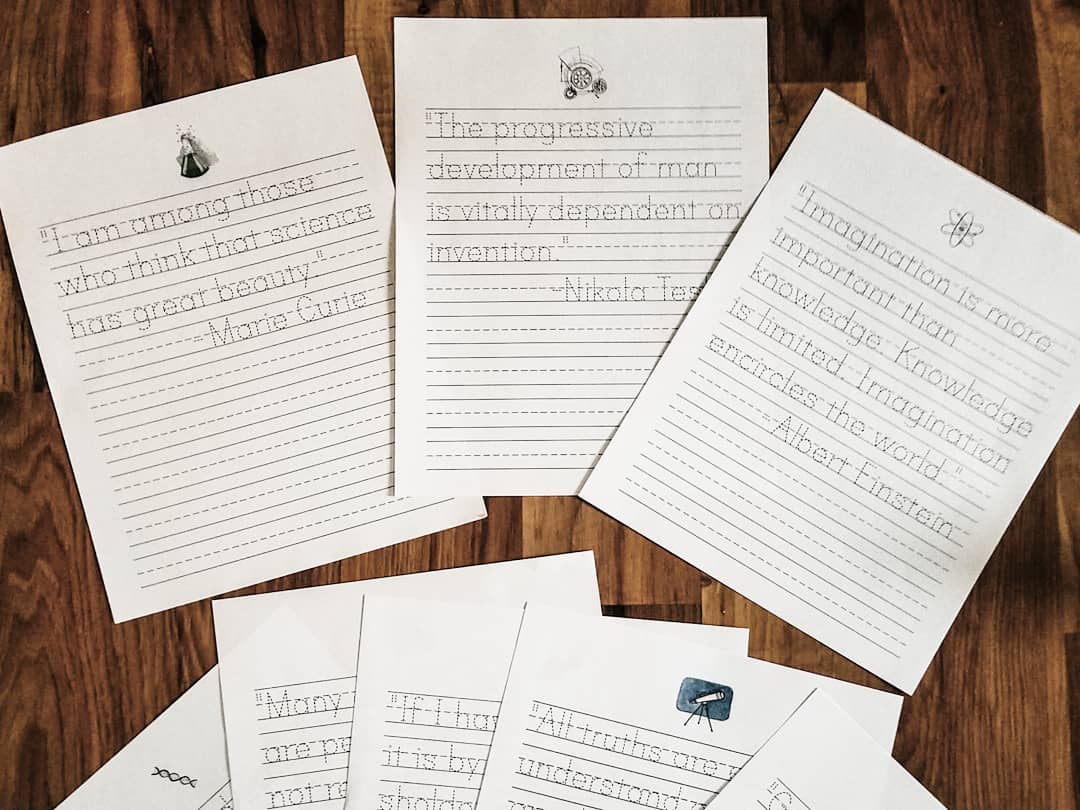 "I am among those
who think that science
has great beauty."
- Marie Curie
"The progressive
development of man
is vitally dependent on
invention."
-Nikola Tes
"Imagination is more
important than
knowledge. Knowledge
is limited. Imagination
encircles the world."
-Albert Einstein
"Many
are pu
not re
"If I ha
it is by
sholde
"All truths are
understand